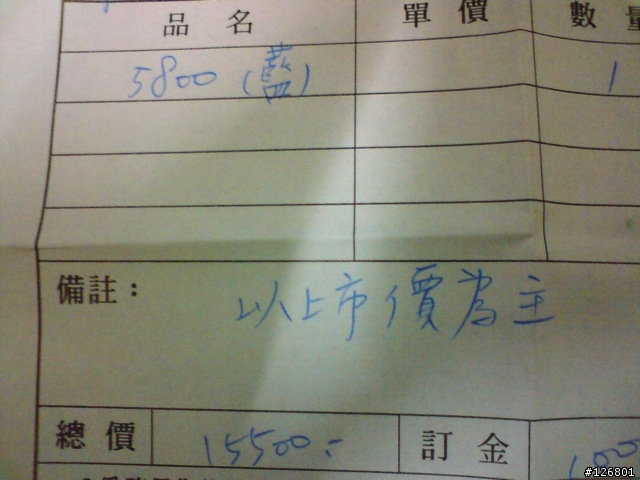 品名 單價 數量
5800 (藍) 1
備註：
以上市價為主
總價 15500.- 訂金
#126801